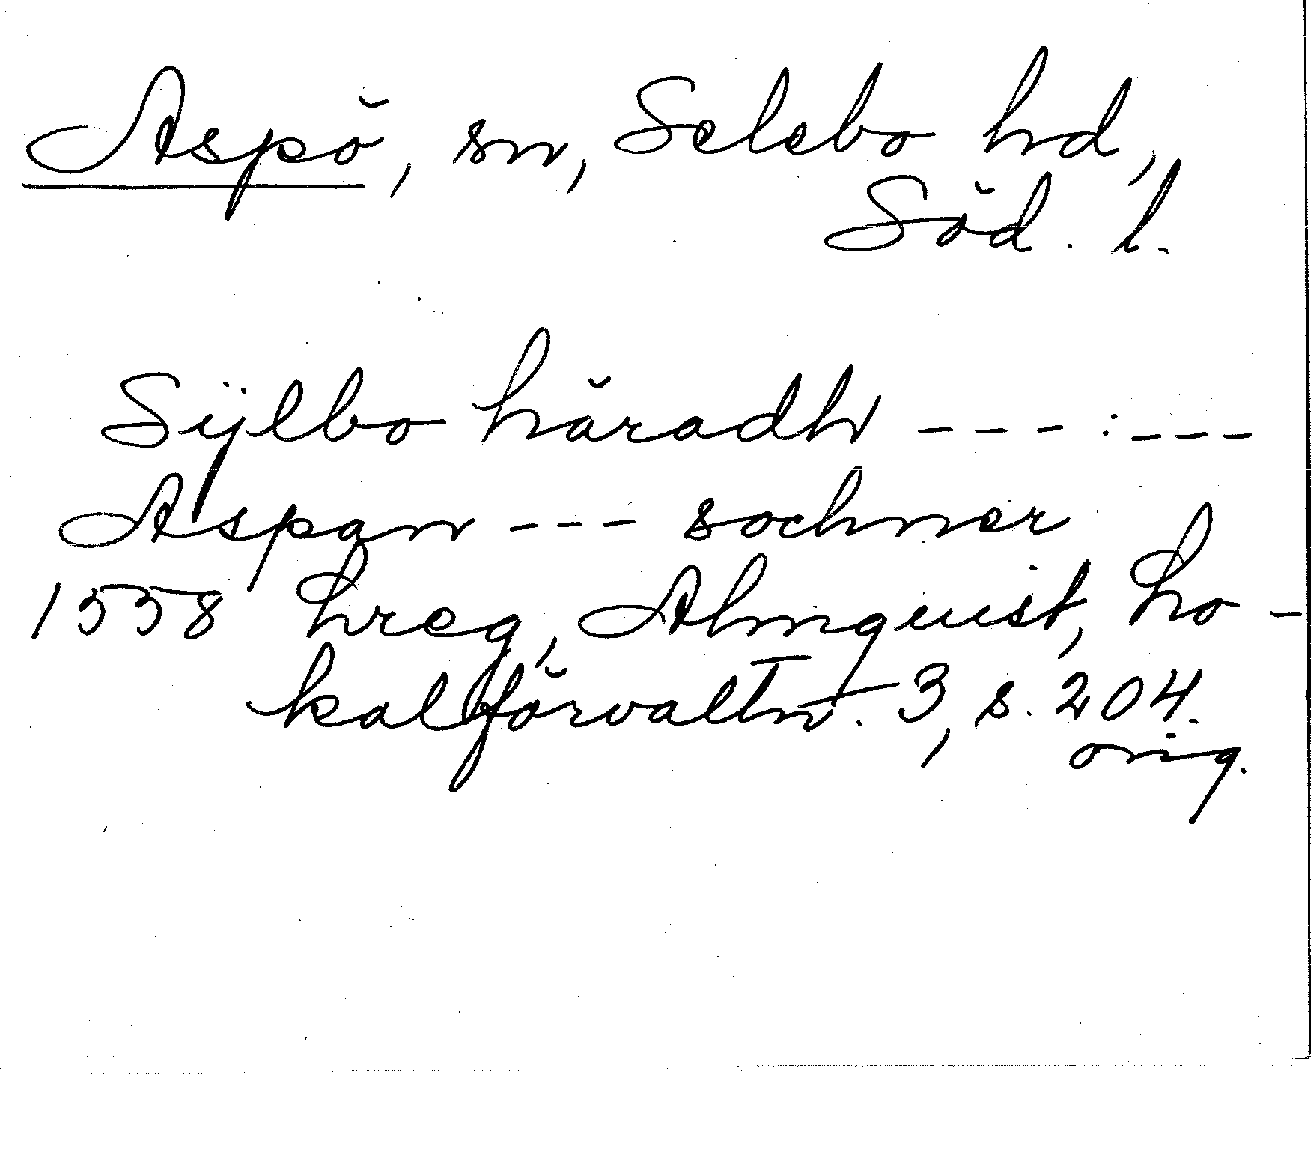 Aspö, sn, Selebo hd,
Söd. l.
Sÿlbo häradh --- : ---
Aspan --- sochner
1558 hreg, Almquist, Lo-
kalförvaltn. 3, s. 204.
orig.